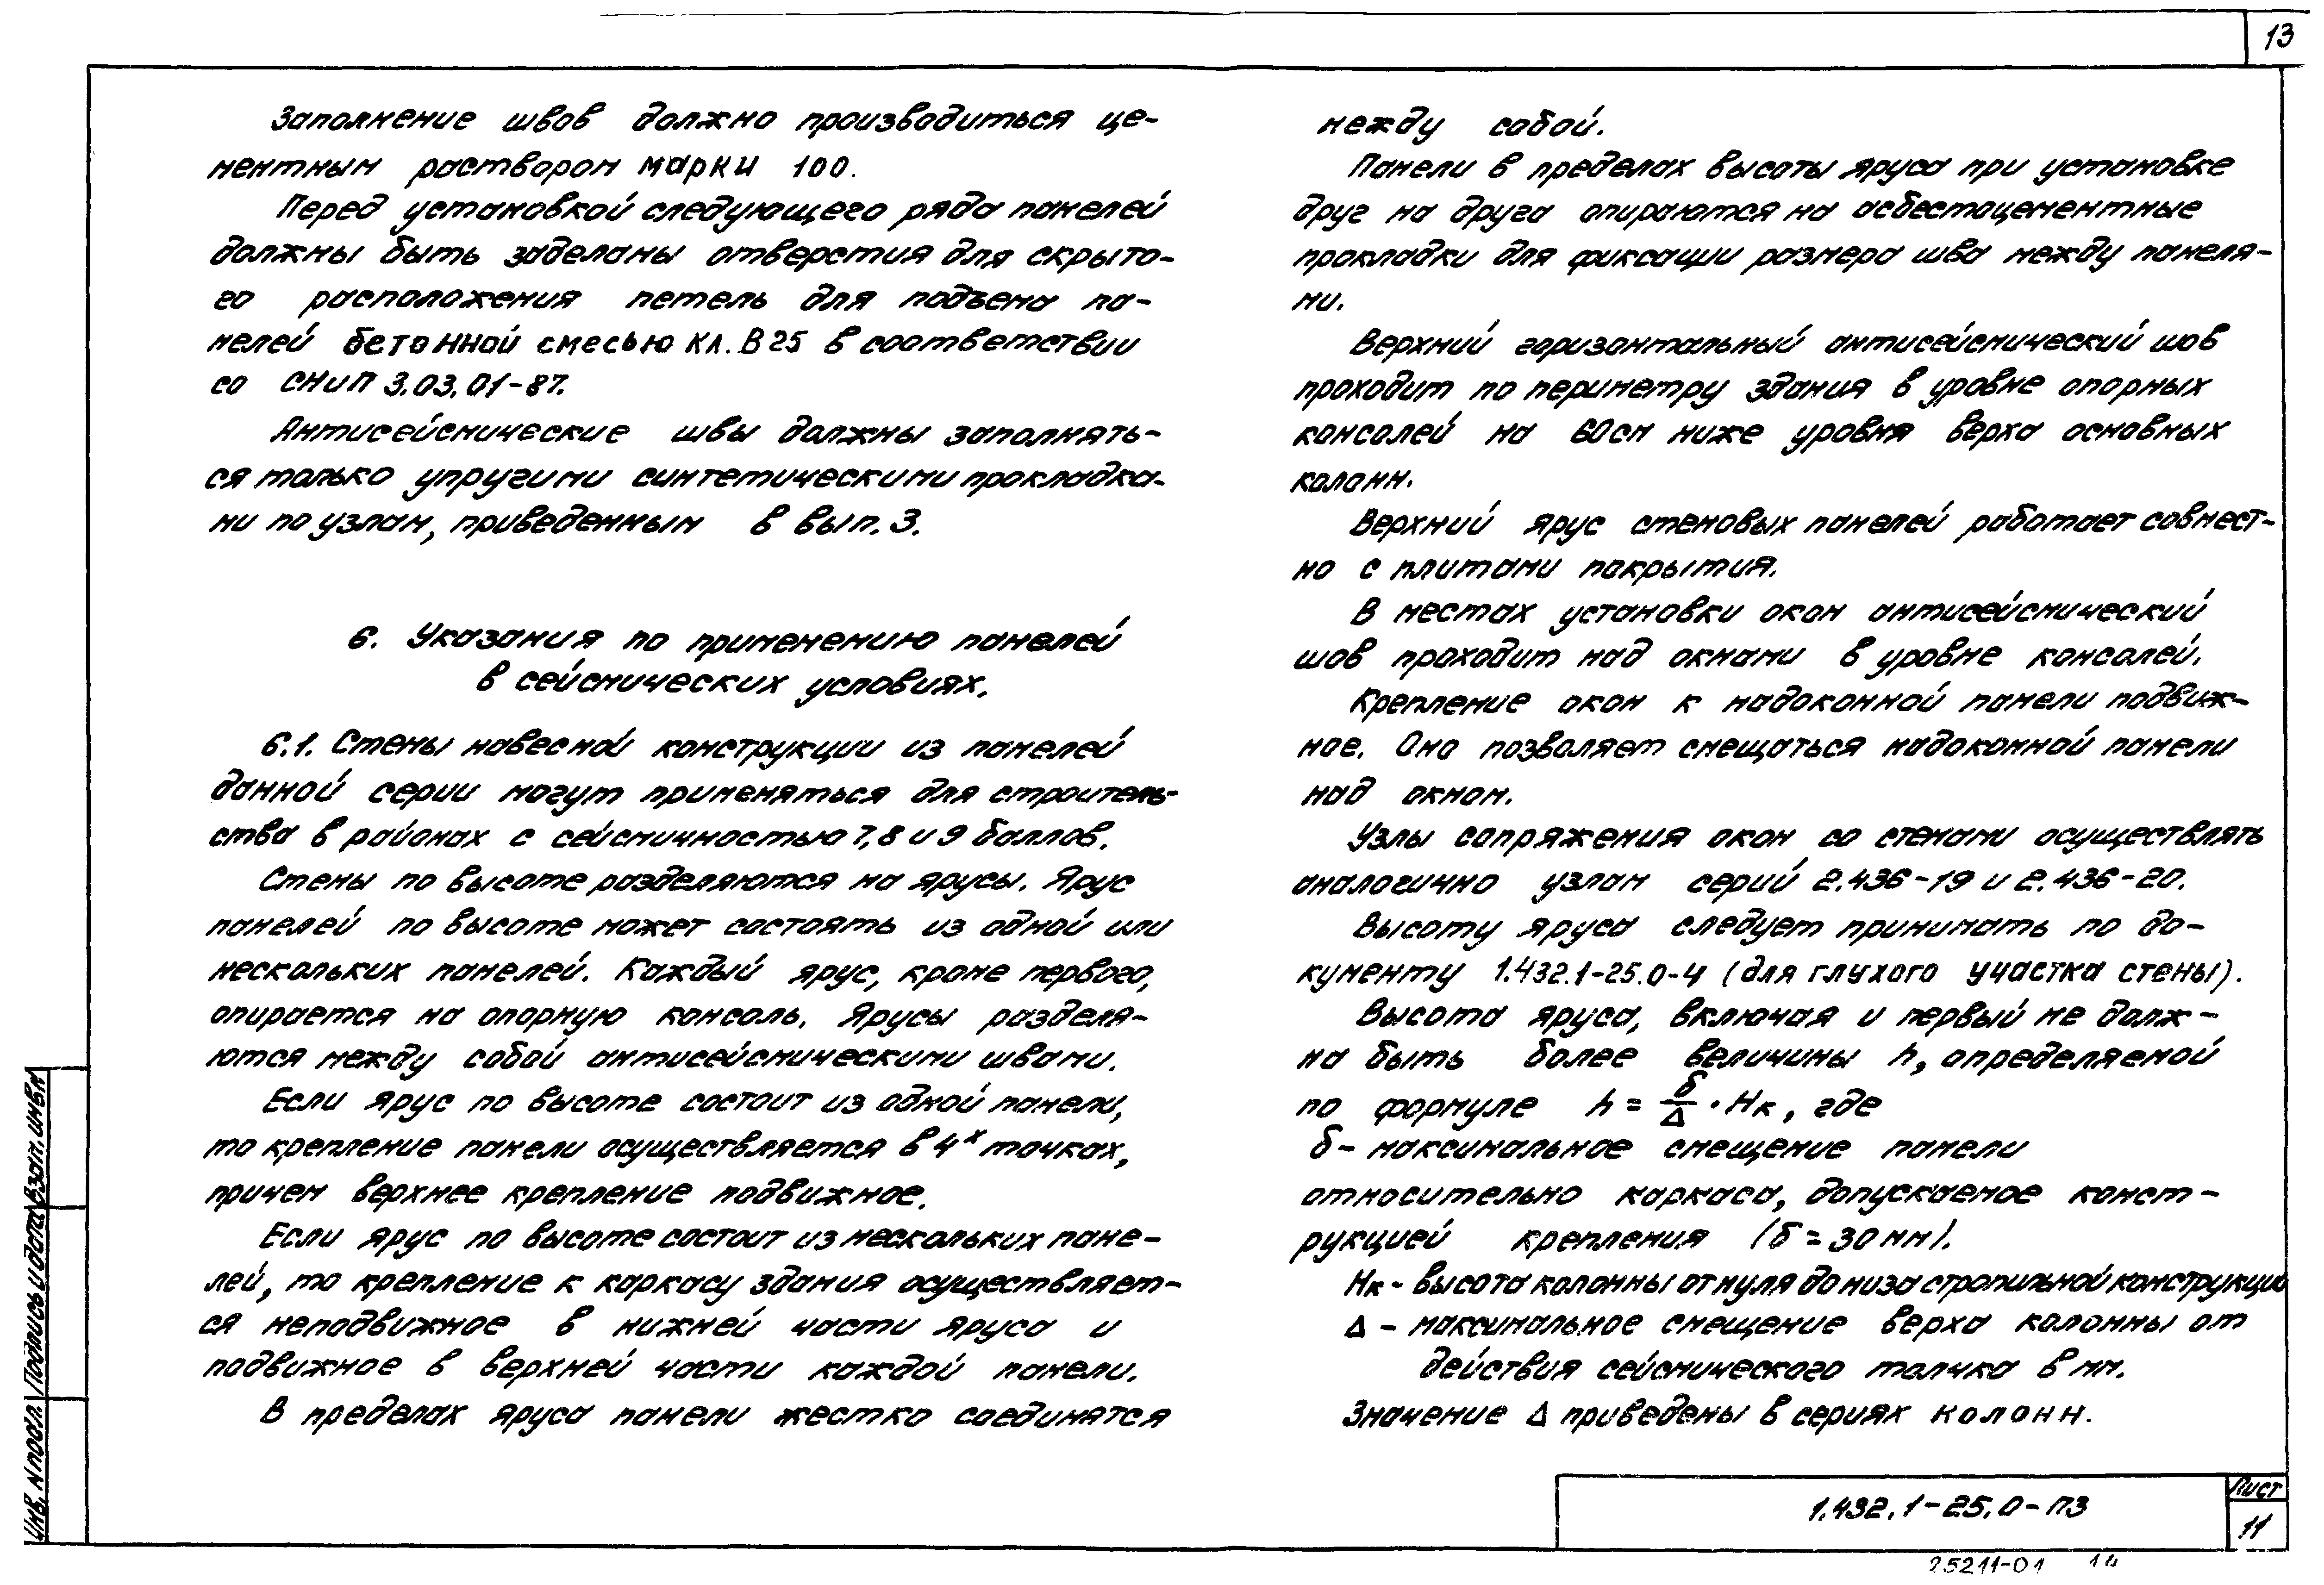 13
Заполнение швов должно производиться це-
ментным раствором марки 100.
Перед установкой следующего ряда панелей
должны быть заделаны отверстия для скрыто-
го расположения петель для подъема па-
нелей бетонной смесью кл. В25 в соответствии
со СНиП 3.03.01-87.
Антисейсмические швы должны заполнять-
ся только упругими синтетическими прокладка-
ми по узлам, приведенным в вып. 3.
6. Указания по применению панелей
в сейсмических условиях.
6.1. Стены навесной конструкции из панелей
данной серии могут применяться для строитель-
ства в районах с сейсмичностью 7, 8 и 9 баллов.
Стены по высоте разделяются на ярусы. Ярус
панелей по высоте может состоять из одной или
нескольких панелей. Каждый ярус, кроме первого,
опирается на опорную консоль. Ярусы разделя-
ются между собой антисейсмическими швами.
Если ярус по высоте состоит из одной панели,
то крепление панели осуществляется в 4х точках,
причем верхнее крепление подвижное.
Если ярус по высоте состоит из нескольких пане-
лей, то крепление к каркасу здания осуществляет-
ся неподвижное в нижней части яруса и
подвижное в верхней части каждой панели.
В пределах яруса панели жестко соединятся
между собой.
Панели в пределах высоты яруса при установке
друг на друга опираются на асбестоцементные
прокладки для фиксации размера шва между панеля-
ми.
Верхний горизонтальный антисейсмический шов
проходит по периметру здания в уровне опорных
консолей на 60см ниже уровня верха основных
колонн.
Верхний ярус стеновых панелей работает совмест-
но с плитами покрытия.
В местах установки окон антисейсмический
шов проходит над окнами в уровне консолей.
Крепление окон к надоконной панели подвиж-
ное. Оно позволяет смещаться надоконной панели
над окном.
Узлы сопряжения окон со стенами осуществлять
аналогично узлам серий 2.436-19 и 2.436-20.
Высоту яруса следует принимать по до-
кументу 1.432.1-25.0-4 (для глухого участка стены).
Высота яруса, включая и первый не долж-
на быть более величины h, определяемой
по формуле h = δ/Δ · Hк, где
δ - максимальное смещение панели
относительно каркаса, допускаемое конст-
рукцией крепления (δ = 30 мм).
Hк - высота колонны от нуля до низа стропильной конструкции
Δ - максимальное смещение верха колонны от
действия сейсмического толчка в мм.
Значение Δ приведены в сериях колонн.
Инв. N подл. Подпись и дата Взам. инв. N
1.432.1-25.0-ПЗ
Лист
11
25211-01 14